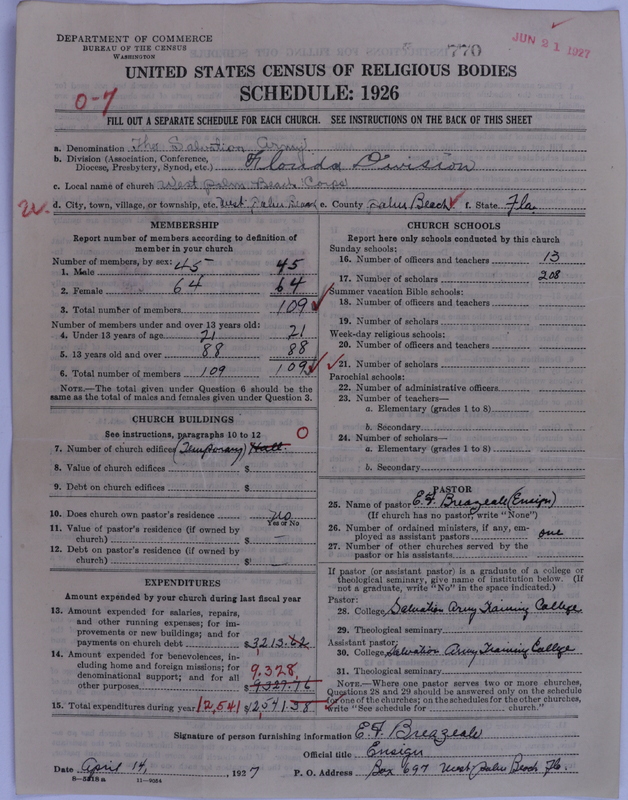 DEPARTMENT OF COMMERCE
BUREAU OF THE CENSUS
WASHINGTON
770
JUN 21 1927
UNITED STATES CENSUS OF RELIGIOUS BODIES
SCHEDULE: 1926
0-7
FILL OUT A SEPARATE SCHEDULE FOR EACH CHURCH. SEE INSTRUCTIONS ON THE BACK OF THIS SHEET
a. Denomination The Salvation Army
b. Division (Association, Conference,
Diocese, Presbytery, Synod, etc.) Florida Division
c. Local name of church West Palm Beach Corps
d. City, town, village, or township, etc. West Palm Beach e. County Palm Beach f. State Fla.
MEMBERSHIP
Report number of members according to definition of
member in your church
Number of members, by sex:
1. Male 45 45
2. Female 64 64
3. Total number of members 109
Number of members under and over 13 years old:
4. Under 13 years of age 21 21
5. 13 years old and over 88 88
6. Total number of members 109 109
NOTE.—The total given under Question 6 should be the
same as the total of males and females given under Question 3.
CHURCH BUILDINGS
See instructions, paragraphs 10 to 12
7. Number of church edifices (Temporary) Hall. 0
8. Value of church edifices $
9. Debt on church edifices $
10. Does church own pastor's residence no
Yes or No
11. Value of pastor's residence (if owned by
church) $ —
12. Debt on pastor's residence (if owned by
church) $ —
EXPENDITURES
Amount expended by your church during last fiscal year
13. Amount expended for salaries, repairs,
and other running expenses; for im-
provements or new buildings; and for
payments on church debt $3213.62
14. Amount expended for benevolences, in-
cluding home and foreign missions; for
denominational support; and for all
other purposes $ 9327.76
9.328
15. Total expenditures during year 12,541 $12,541.38
CHURCH SCHOOLS
Report here only schools conducted by this church
Sunday schools:
16. Number of officers and teachers 13
17. Number of scholars 208
Summer vacation Bible schools:
18. Number of officers and teachers
19. Number of scholars
Week-day religious schools:
20. Number of officers and teachers
21. Number of scholars
Parochial schools:
22. Number of administrative officers
23. Number of teachers—
a. Elementary (grades 1 to 8)
b. Secondary
24. Number of scholars—
a. Elementary (grades 1 to 8)
b. Secondary
PASTOR
25. Name of pastor E. F. Breazeale (Ensign)
(If church has no pastor, write "None")
26. Number of ordained ministers, if any, em-
ployed as assistant pastors one
27. Number of other churches served by the
pastor or his assistants
If pastor (or assistant pastor) is a graduate of a college or
theological seminary, give name of institution below. (If
not a graduate, write "No" in the space indicated.)
Pastor:
28. College Salvation Army Training College
29. Theological seminary
Assistant pastor:
30. College Salvation Army Training College
31. Theological seminary
NOTE.—Where one pastor serves two or more churches,
Questions 28 and 29 should be answered only on the schedule
for one of the churches; on the schedules for the other churches,
write "See schedule for church."
Signature of person furnishing information E. F. Breazeale
Official title Ensign
Date April 14, 1927 P. O. Address Box 697 West Palm Beach Fla.
8—5318 a 11—9054